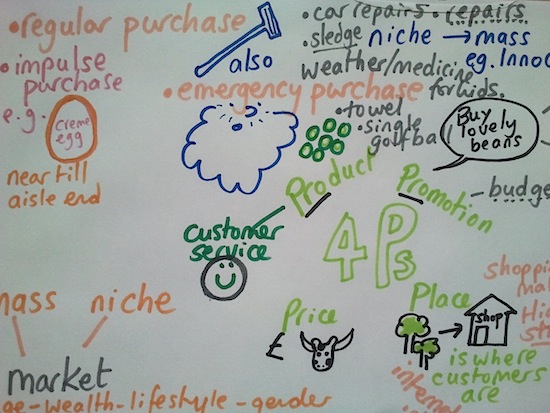 • regular purchase
• impulse
purchase
e.g.
creme
egg
near till
aisle end
also
• car repairs - repairs
• sledge niche → mass
eg. Innoc
weather/medicine
for kids.
• emergency purchase
• towel
• single
golf ball
Buy
lovely
beans
Product
Promotion
- budge
customer
service
4Ps
Price
£
Place
shop
is where
customers
are
shoppi
ma
Hi
st
mass niche
market
ge - wealth - lifestyle - gender